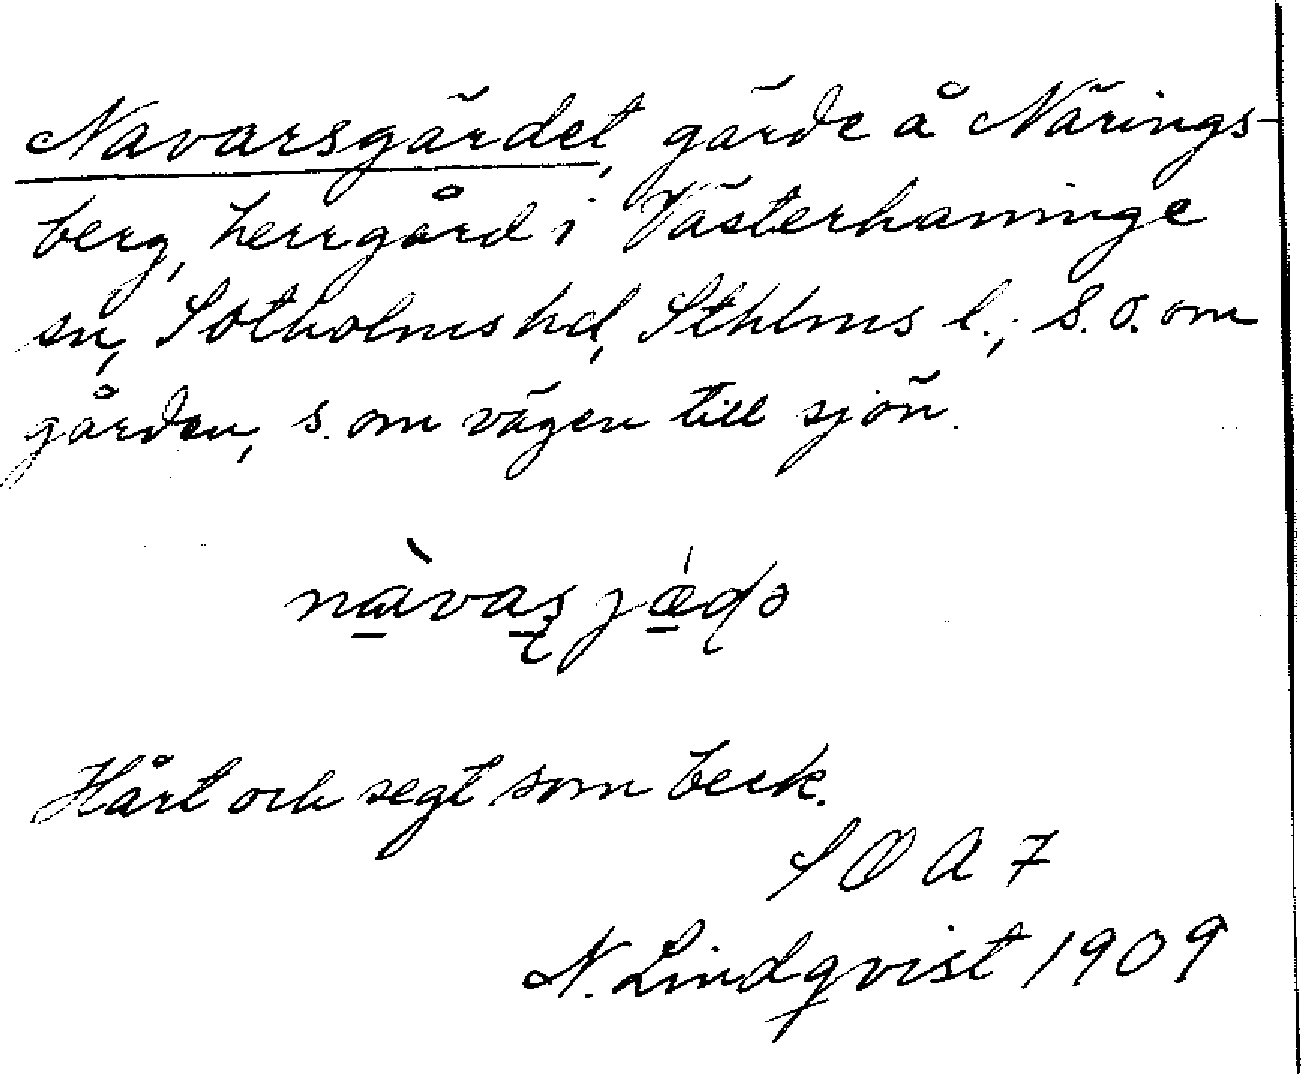 Navarsgärdet, gärde å Närings-
berg, herrgård i Västerhaninge
sn, Sotholms hd, Sthlms l.; S.O. om
gården, s. om vägen till sjön.
nàvas jǽdə
Hårt och segt som beck.
SOA 7
N. Lindqvist 1909